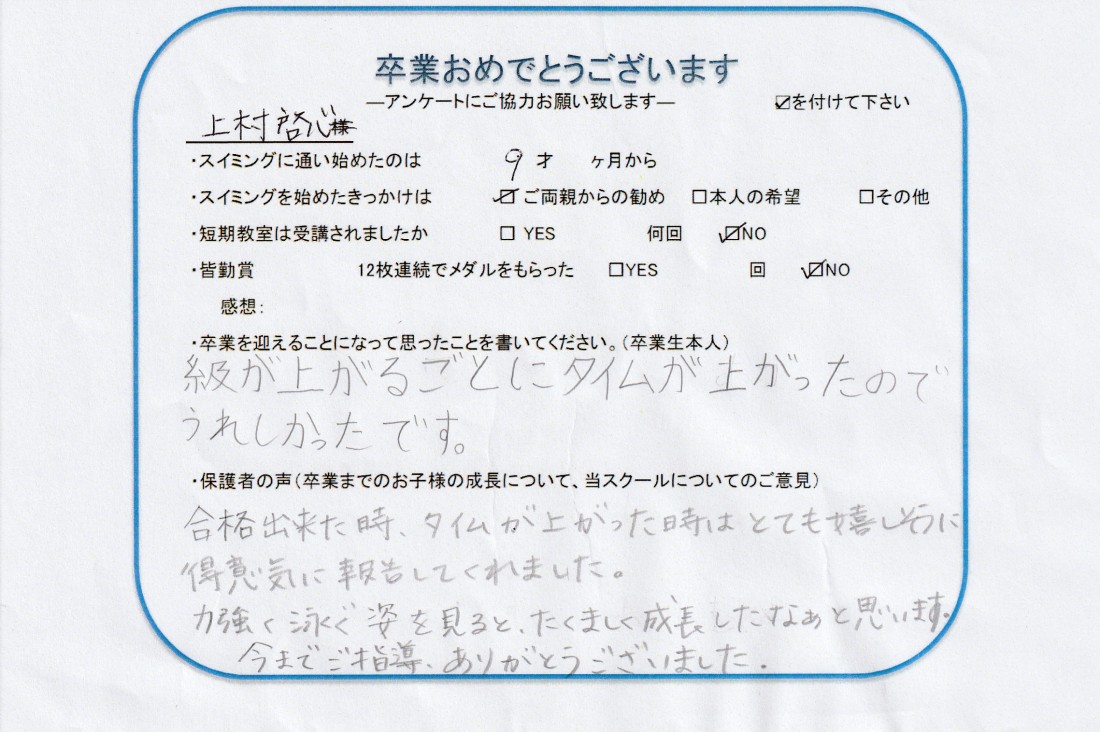 卒業おめでとうございます
―アンケートにご協力お願い致します―　☑を付けて下さい
上村啓心様
・スイミングに通い始めたのは　9才　ヶ月から
・スイミングを始めたきっかけは　☑ご両親からの勧め　☐本人の希望　☐その他
・短期教室は受講されましたか　☐ YES　何回　☑NO
・皆勤賞　12枚連続でメダルをもらった　☐YES　回　☑NO
感想：
・卒業を迎えることになって思ったことを書いてください。（卒業生本人）
級が上がるごとにタイムが上がったので
うれしかったです。
・保護者の声（卒業までのお子様の成長について、当スクールについてのご意見）
合格出来た時、タイムが上がった時はとても嬉しそうに
得意気に報告してくれました。
力強く泳ぐ姿を見ると、たくましく成長したなぁと思います。
今までご指導、ありがとうございました。